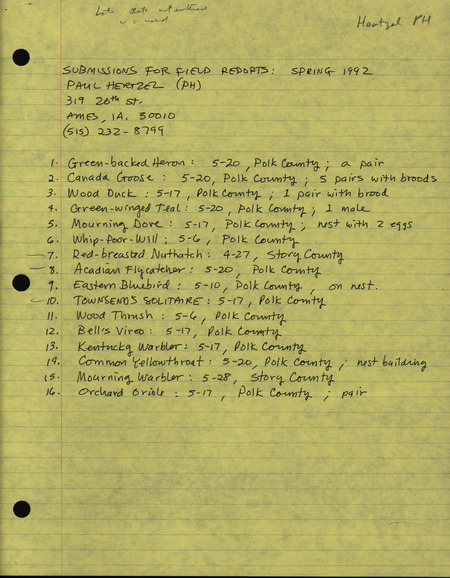 Late date not entered
is a need
Hertzel PH
SUBMISSIONS FOR FIELD REPORTS: SPRING 1992
PAUL HERTZEL (PH)
319 20th St.
AMES, IA. 50010
(515) 232-8799
1. Green-backed Heron: 5-20, Polk County; a pair
2. Canada Goose: 5-20, Polk County; 5 pairs with broods
3. Wood Duck: 5-17, Polk County; 1 pair with brood
4. Green-winged Teal: 5-20, Polk County; 1 male
5. Mourning Dove: 5-17, Polk County; nest with 2 eggs
6. Whip-Poor-Will: 5-6, Polk County
7. Red-breasted Nuthatch: 4-27, Story County
8. Acadian Flycatcher: 5-20, Polk County
9. Eastern Bluebird: 5-10, Polk County, on nest.
10. TOWNSEND'S SOLITAIRE: 5-17, Polk County
11. Wood Thrush: 5-6, Polk County
12. Bell's Vireo: 5-17, Polk County
13. Kentucky Warbler: 5-17, Polk County
14. Common Yellowthroat: 5-20, Polk County; nest building
15. Mourning Warbler: 5-28, Story County
16. Orchard Oriole: 5-17, Polk County; pair